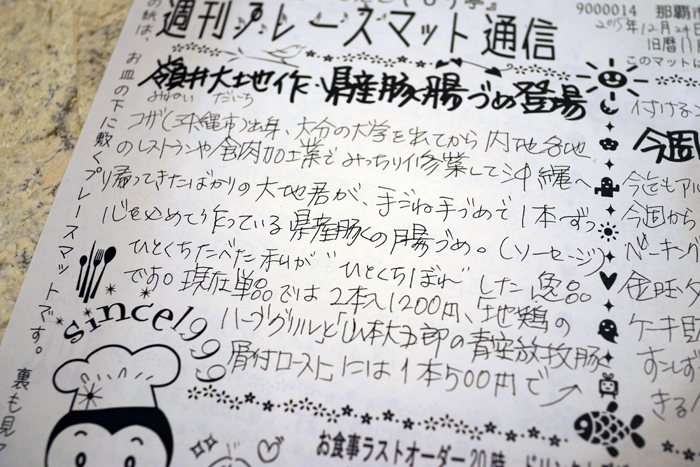 週刊プレースマット通信
9000014 那覇市
2015年12月24日
旧暦11
このマットに
の紙は、お皿の下に敷くプレースマットです。裏も見
嶺井大地作・県産豚腸づめ登場
みねい だいち
コザ(沖縄市)出身、大分の大学を出てから内地各地
のレストランや食肉加工業でみっちり修業して沖縄へ
帰ってきたばかりの大地君が、手ごね手づめで1本ずつ
心を込めて作っている県産豚の腸づめ。(ソーセージ)
ひとくちたべた私が"ひとくちぼれ"した逸品
です。現在単品では2本入1200円、「地鶏の
ハーブグリル」と「山本太五郎の青空放牧豚
骨付ロースト」には1本500円で
since1999
付ける
今週
今迄もア
今週から
ベーキン
金旺
ケーキ
すンし
きる
お食事ラストオーダー20時、ドリン